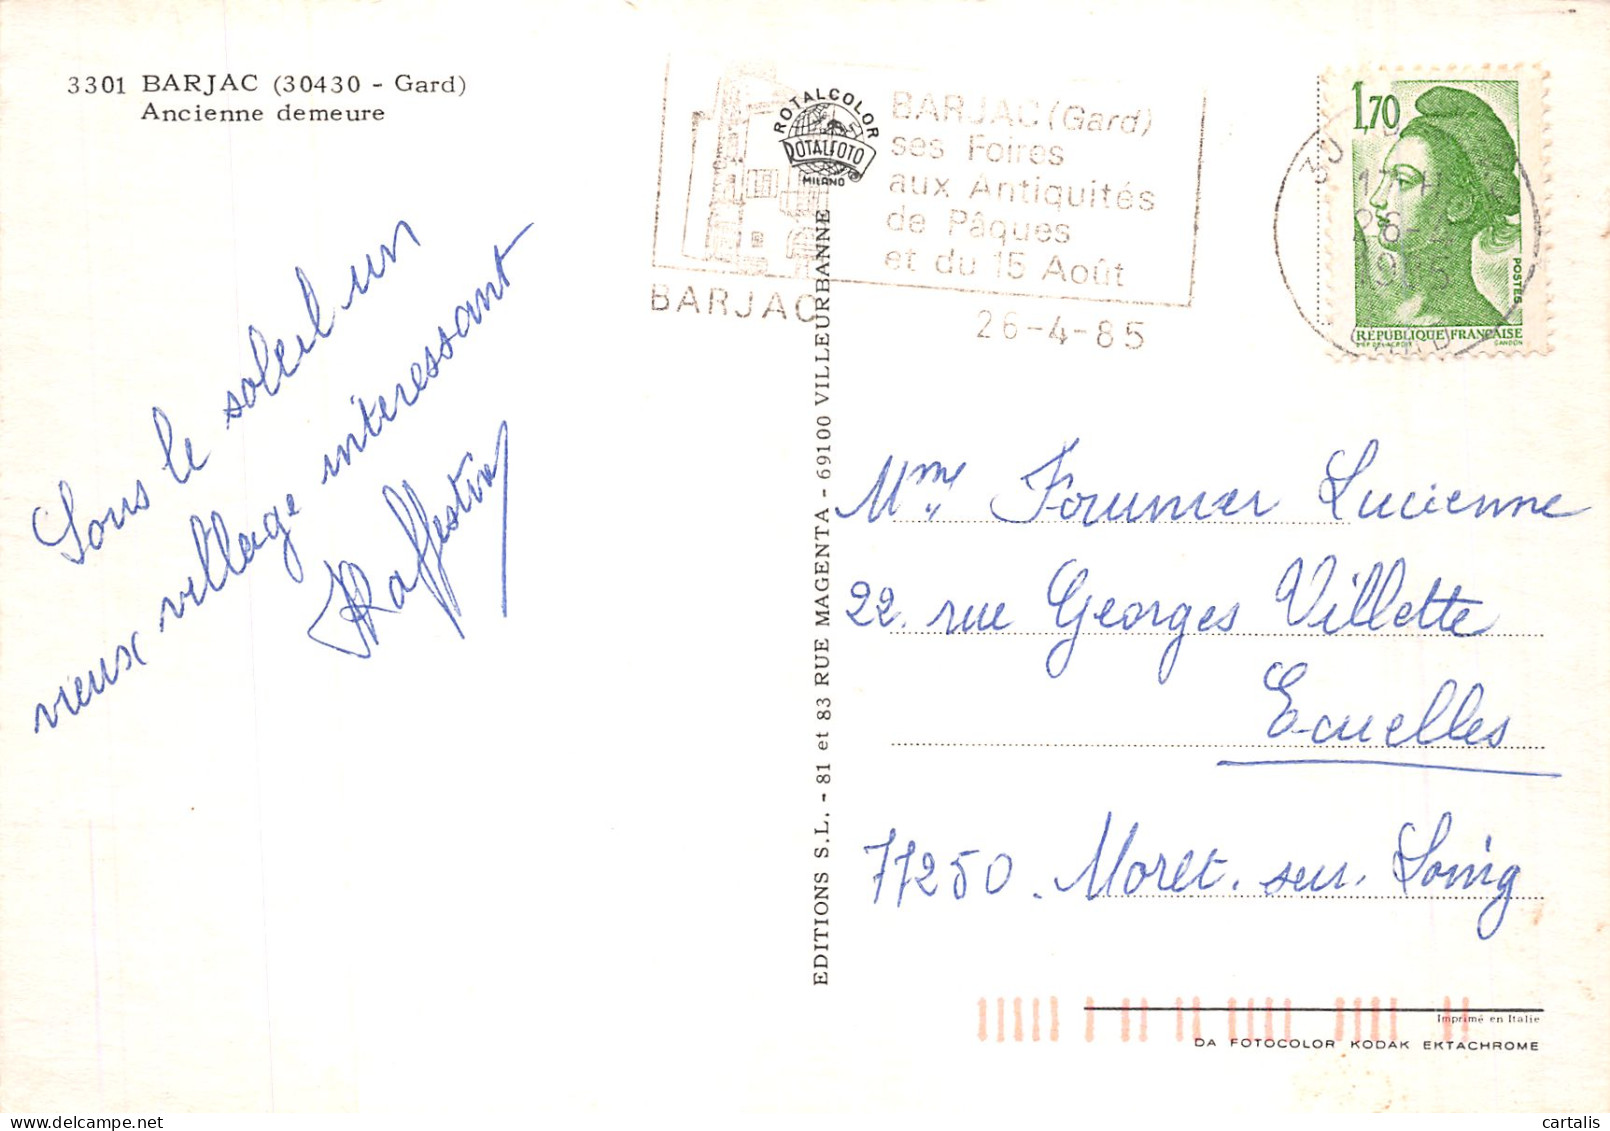 3301 BARJAC (30430 - Gard)
Ancienne demeure
Sous le soleil un
vieux village interessant
Raffestin
ROTALCOLOR
ROTALFOTO
MILANO
BARJAC (Gard)
ses Foires
aux Antiquités
de Pâques
et du 15 Août
BARJAC
26-4-85
1,70
POSTES
RÉPUBLIQUE FRANÇAISE
GANDON
17 H
26-4
1985
EDITIONS S.L. - 81 et 83 RUE MAGENTA - 69100 VILLEURBANNE
Mme Fournier Lucienne
22. rue Georges Villette
Ecuelles
77250. Moret. sur. Loing
Imprimé en Italie
DA FOTOCOLOR KODAK EKTACHROME
cartalis